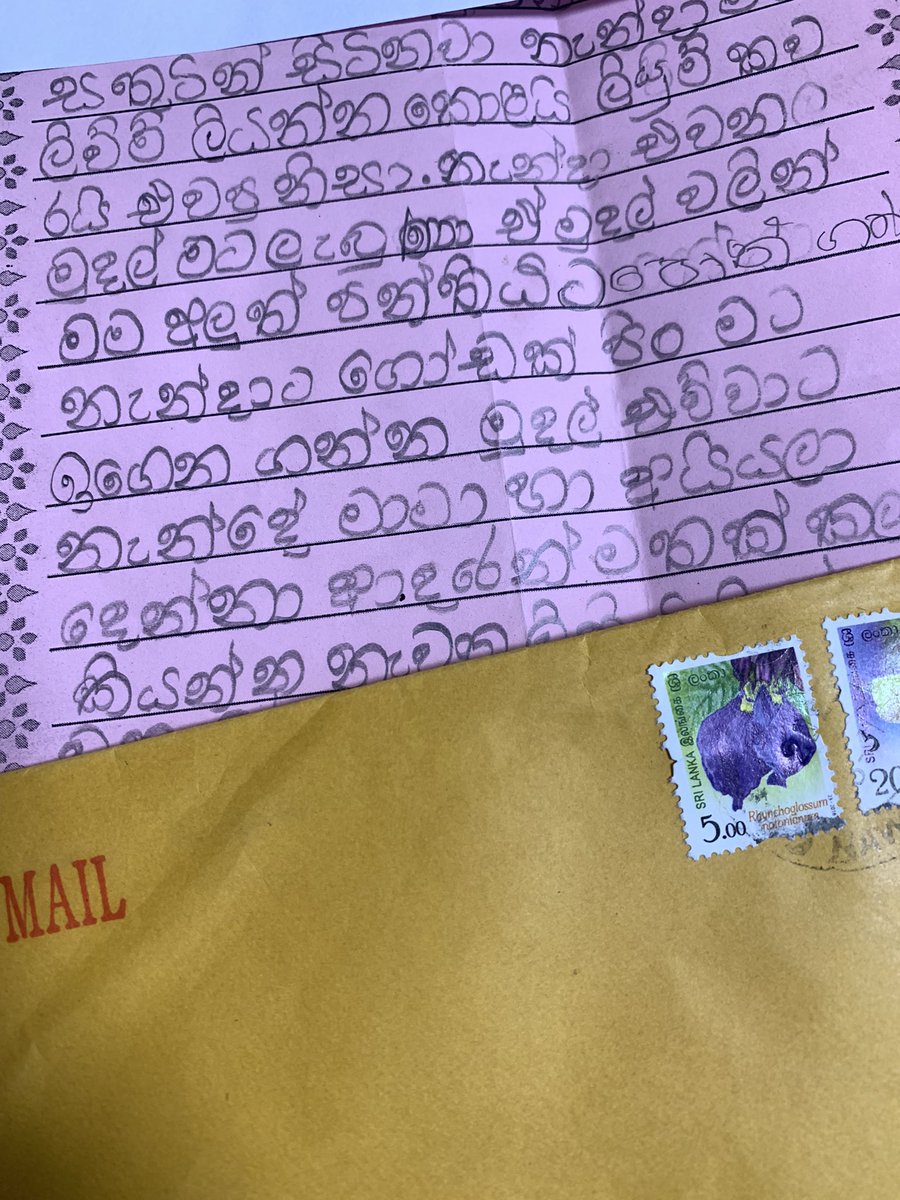 සතුටින් සිටිනවා නැන්දා
ලිව්ම් ලියන්න කොපයි ලියුම් කව
රයි එවපු නිසා. නැන්දා එවන
මුදල් මට ලැබුණා ඒ මුදල් වලින්
මම අලුත් පන්තියට පොත් ගත්
නැන්දාට ගෝඩක් පිං මට
ඉගෙන ගන්න මුදල් එව්වාට
නැන්දේ මාමා හා අයියලා
දෙන්නා ආදරෙන් මතක් කල
කියන්න නැවත
MAIL
ශ්‍රී ලංකා
இலங்கை
SRI LANKA
5.00
Rhynchoglossum
notonianum
ලංකා
20